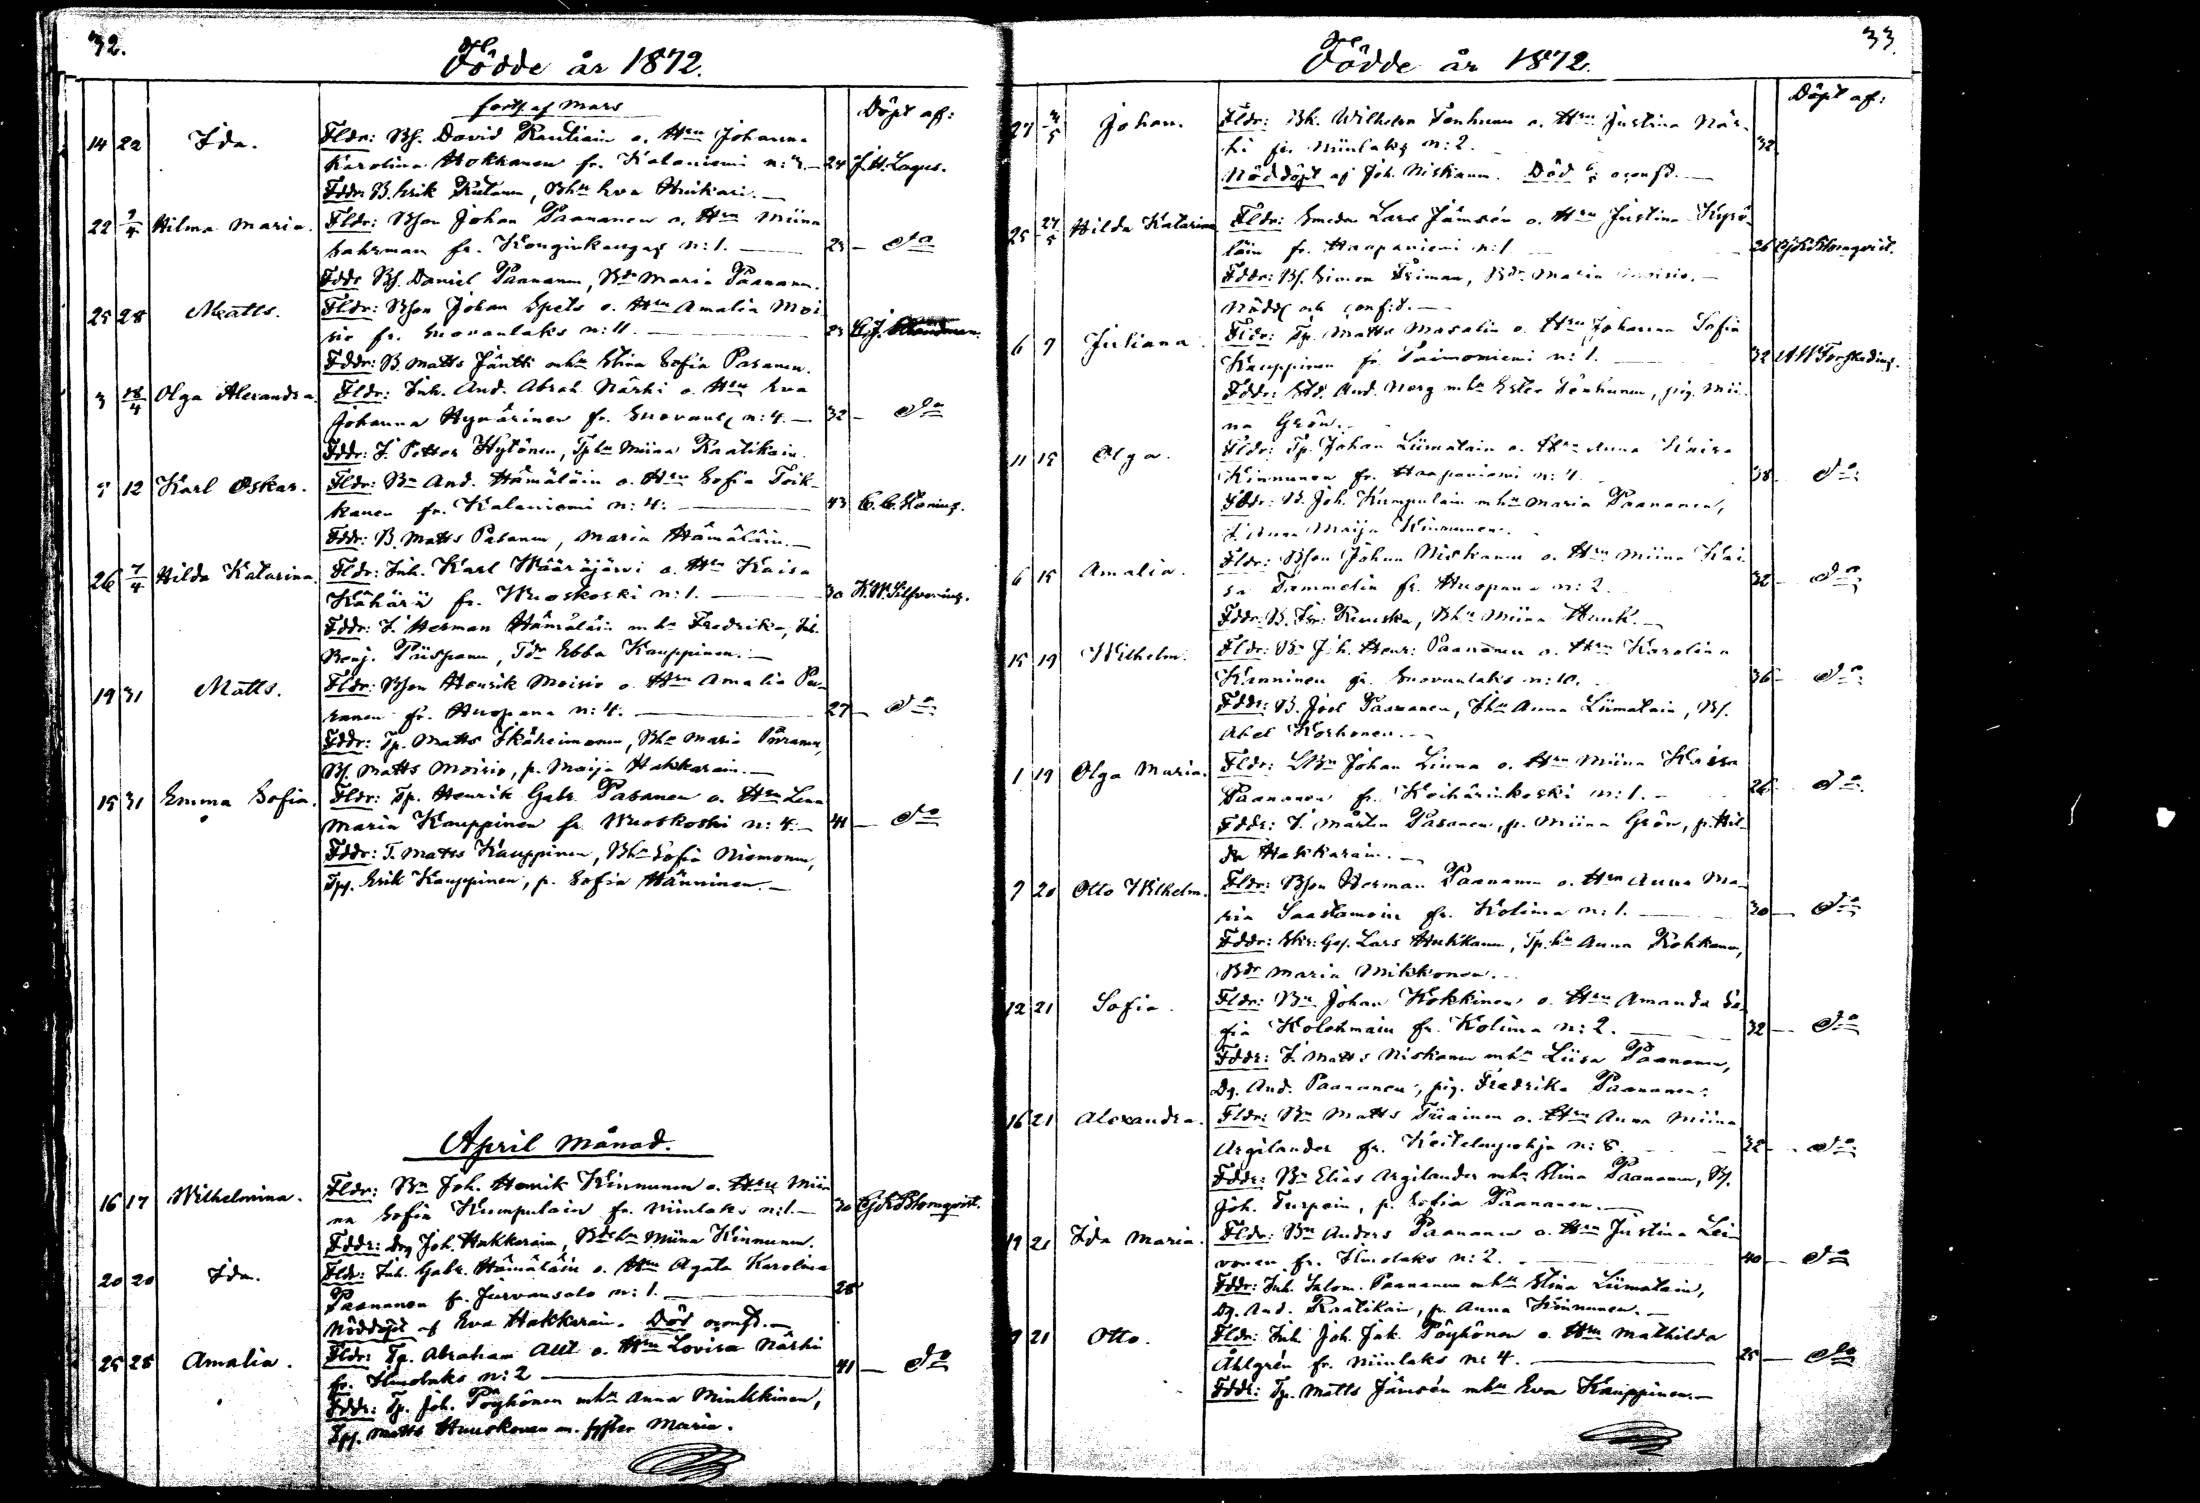 32.
Födde år 1872.
forts. af Mars
Döpt af:
14 22 Ida. Fldr: Bf. David Rautiain o. Hru Johanna
Karolina Hokkanen fr. Kalaniemi n: 3. — 24 J. H. Lagus.
Fddr: B. Erik Kutanen, Bhu Eva Huikari. —
22 7/4 Hilma Maria. Fldr: Bson Johan Paananen o. Hru Miina
Sahrman fr. Konginkangas n: 1. — 23 — Do
Fddr: Bf. Daniel Paananen, Bdr Maria Paananen.
25 28 Matts. Fldr: Bson Johan Spets o. Hru Amalia Moi
sio fr. Suovanlaks n: 11. — 23 K. J.
Fddr: B. Matts Jäntti mhu Stina Sofia Pasanen.
3 18/4 Olga Alexandra. Fldr: Inh. And. Abrah. Närhi o. Hru Eva
Johanna Hyvärinen fr. Suovanl. n: 4. — 32 — Do
Fddr: I. Petter Hytönen, Tphu Miina Raatikain.
5 12 Karl Oskar. Fldr: Bn And. Hämäläin o. Hru Sofia Toik-
kanen fr. Kalaniemi n: 4. — 43 C. C. Konius.
Fddr: B. Matts Pasanen, Maria Hämäläin. —
26 7/4 Hilda Katarina. Fldr: Inh. Karl Määräjärvi o. Hru Kaisa
Kähärä fr. Wuoskoski n: 1. — 30 K. W. Silfvenius.
Fddr: I. Herman Hämäläin m hu Fredrika, Inh.
Benj. Piispanen, Tdr Ebba Kauppinen. —
19 31 Matts. Fldr: Bson Henrik Moisio o. Hru Amalia Pa-
sanen fr. Huopana n: 4. — 27 — Do
Fddr: Tp. Matts Ikäheimonen, Bhu Maria Piiranen,
Bf. Matts Moisio, p. Maija Hakkarain. —
15 31 Emma Sofia. Fldr: Tp. Henrik Gabr. Pasanen o. Hru Lena
Maria Kauppinen fr. Wuoskoski n: 4. — 41 — Do
Fddr: T. Matts Kauppinen, Bhu Sofia Niemonen,
Tpf. Erik Kauppinen, p. Sofia Hänninen. —
April Månad.
16 17 Wilhelmina. Fldr: Bn Joh. Henrik Kinnunen o. Hru Mii
na Sofia Kumpulain fr. Niinlaks n: 1. — 30 Blomqvist.
Fddr: Drg Joh. Hakkarain, Miina Kinnunen.
20 20 Ida. Fldr: Inh. Gabr. Hämäläin o. Hru Agata Karolina
Paananen fr. Jurvansalo n: 1. — 28
Nöddöpt af Eva Hakkarain. Död oconft. —
25 28 Amalia. Fldr: Tp. Abraham Allt o. Hru Lovisa Närhi
fr. Ilmolaks n: 2 — 41 — Do
Fddr: Tp. Joh. Pöyhönen mhu Anna Minkkinen,
Tpf. Matts Huuskonen m. syster Maria.
33.
Födde år 1872.
Döpt af:
27 4/5 Johan. Fldr: Bk. Wilhelm Tenhunen o. Hru Justina När-
hi fr. Niinlaks n: 2. — 32
Nöddöpt af Joh. Niskanen. Död oconft. —
25 27/5 Hilda Katarina. Fldr: Smeden Lars Jämsén o. Hru Justina Kyrö-
läin fr. Haapaniemi n: 1 — 26 Blomqvist.
Fddr: Bf. Simon Friman, Bdr Maria Moisio. —
Nödd. och conf:d. —
6 7 Juliana. Fldr: Tp. Matts Masalin o. Hru Johanna Sofia
Kauppinen fr. Taimoniemi n: 1. — 32
Fddr: And. Norg mhu Ester Tenhunen, pig. Mii
na Grön.
11 15 Olga. Fldr: Tp. Johan Liimatain o. Hru Anna Kaisa
Kinnunen fr. Haapaniemi n: 4. 38 — Do
Fddr: B. Joh. Kumpulain mhu Maria Paananen,
I. Anna Maija Kinnunen.
6 15 Amalia. Fldr: Bson Johan Niskanen o. Hru Miina Kai
sa Tammelin fr. Huopana n: 2. 32 — Do
Fddr: B. Isr. Ruuska, Bhu Miina Hauk. —
15 19 Wilhelm. Fldr: Bn Joh. Henr: Paananen o. Hru Karolina
Kanninen fr. Suovanlaks n: 10. 36 — Do
Fddr: B. Joel Paananen, Ihu Anna Liimatain, Bf.
Abel Korhonen. —
1 19 Olga Maria. Fldr: LBn Johan Linna o. Hru Miina Kaisa
Paananen fr. Keihärinkoski n: 1. — 26 — Do
Fddr: I. Mårten Pasanen, p. Miina Grön, p. Hil-
da Hakkarain. —
7 20 Otto Wilhelm. Fldr: Bson Herman Paananen o. Hru Anna Ma-
ria Saastamoin fr. Kolima n: 1. — 30 — Do
Fddr: Skr: Ges. Lars Hukkanen, Tp. hu Anna Rohkanen,
Bdr Maria Mikkonen. —
12 21 Sofia. Fldr: Bn Johan Kokkinen o. Hru Amanda So
fia Kolehmain fr. Kolima n: 2. — 32 — Do
Fddr: I. Matts Niskanen mhu Liisa Paananen,
Dg. And. Paananen, pig. Fredrika Paananen.
16 21 Alexandra. Fldr: Bn Matts Tiainen o. Hru Anna Miina
Argilander fr. Keitelepohja n: 8. — 22 — Do
Fddr: Bn Elias Argilander mhu Stina Paananen, Bf.
Joh. Turpein, p. Sofia Paananen. —
19 21 Ida Maria. Fldr: Bn Anders Paananen o. Hru Justina Lei-
vonen fr. Ilmolaks n: 2. — 40 — Do
Fddr: Inh. Salom. Paananen mhu Stina Liimatain,
Dg. And. Raatikain, p. Anna Kinnunen. —
9 21 Otto. Fldr: Inh. Joh. Jak. Pöyhönen o. Hru Mathilda
Åhlgrén fr. Niinlaks n: 4. — 25 — Do
Fddr: Tp. Matts Jämsén mhu Eva Kauppinen. —